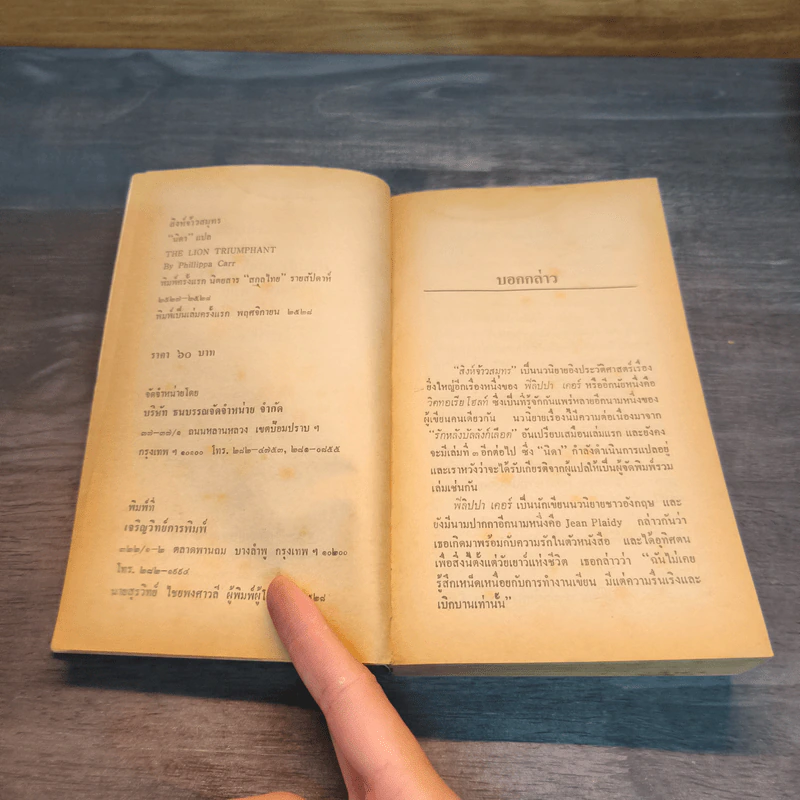 สิงห์จ้าวสมุทร
"นิดา" แปล
THE LION TRIUMPHANT
By Phillippa Carr
พิมพ์ครั้งแรก นิตยสาร "สกุลไทย" รายสัปดาห์
๒๕๒๗-๒๕๒๘
พิมพ์เป็นเล่มครั้งแรก พฤศจิกายน ๒๕๒๘
ราคา ๖๐ บาท
จัดจำหน่ายโดย
บริษัท ธนบรรณจัดจำหน่าย จำกัด
๓๗-๓๗/๑ ถนนหลานหลวง เขตป้อมปราบ ฯ
กรุงเทพ ฯ ๑๐๑๐๐ โทร. ๒๘๒-๔๗๕๓, ๒๘๑-๐๘๕๕
พิมพ์ที่
เจริญวิทย์การพิมพ์
๓๒๒/๑-๒ ตลาดพานถม บางลำพู กรุงเทพ ฯ ๑๐๒๐๐
โทร. ๒๘๒-๑๙๙๔
นายสุรวิทย์ ไชยพงศาวลี ผู้พิมพ์ผู้
บอกกล่าว
"สิงห์จ้าวสมุทร" เป็นนวนิยายอิงประวัติศาสตร์เรื่อง
ยิ่งใหญ่อีกเรื่องหนึ่งของ ฟิลิปปา เคอร์ หรืออีกนัยหนึ่งคือ
วิคทอเรีย โฮลท์ ซึ่งเป็นที่รู้จักกันแพร่หลายอีกนามหนึ่งของ
ผู้เขียนคนเดียวกัน นวนิยายเรื่องนี้มีความต่อเนื่องมาจาก
"รักหลังบัลลังก์เลือด" อันเปรียบเสมือนเล่มแรก และยังคง
จะมีเล่มที่ ๓ อีกต่อไป ซึ่ง "นิดา" กำลังดำเนินการแปลอยู่
และเราหวังว่าจะได้รับเกียรติจากผู้แปลให้เป็นผู้จัดพิมพ์รวม
เล่มเช่นกัน
ฟิลิปปา เคอร์ เป็นนักเขียนนวนิยายชาวอังกฤษ และ
ยังมีนามปากกาอีกนามหนึ่งคือ Jean Plaidy กล่าวกันว่า
เธอเกิดมาพร้อมกับความรักในตัวหนังสือ และได้อุทิศตน
เพื่อสิ่งนี้ตั้งแต่วัยเยาว์แห่งชีวิต เธอกล่าวว่า "ฉันไม่เคย
รู้สึกเหน็ดเหนื่อยกับการทำงานเขียน มีแต่ความรื่นเริงและ
เบิกบานเท่านั้น"